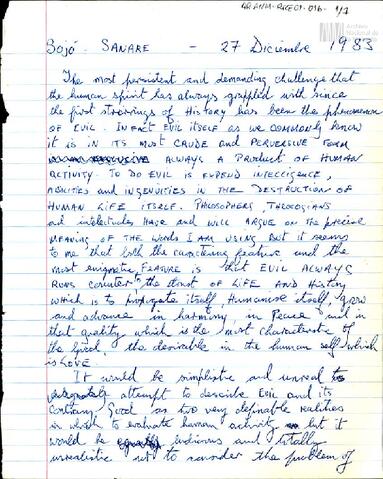 BRANH-RXE01-016- 1/1
Archivo
Nacional de
Sojó - SANARE - 27 Diciembre 1983
The most persistent and demanding challenge that
the human spirit has always grappled with since
the first stirrings of History has been the phenomenon
OF EVIL. IN FACT EVIL ITSELF AS WE COMMONLY KNOW
IT IS IN ITS MOST CRUDE AND PERVERSIVE FORM
ALWAYS A PRODUCT OF HUMAN
ACTIVITY. TO DO EVIL IS EXPEND INTELLIGENCE,
ABILITIES AND INGENUITIES IN THE DESTRUCTION OF
HUMAN LIFE ITSELF. PHILOSOPHERS, THEOLOGIANS
and intellectuals HAVE and WILL ARGUE ON the precise
MEANING OF THE WORDS I AM USING, BUT it seems
to me that both the characteristic feature and the
most enigmatic FEATURE IS that EVIL ALWAYS
RUNS counter to the thrust of LIFE AND History
which is to propagate itself, Humanise itself, grow
and advance in harmony, in Peace and in
that quality which is the most characteristic of
the good, the desirable in the human self which
is LOVE
It would be simplistic and unreal to
attempt to describe EVIL and its
contrary, Good as two very definable realities
in which to evaluate human activity but it
would be injurious and totally
unrealistic not to consider the problem of